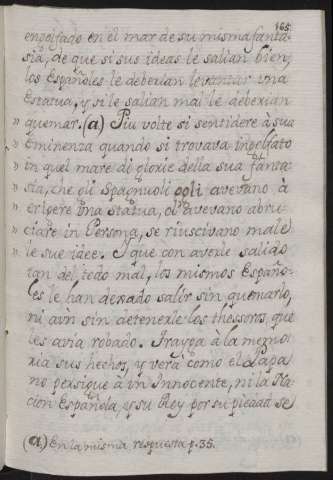 165.
engolfado en el mar de su misma fanta-
sia, de que si sus ideas le salian bien,
los Españoles le deberian levantar una
Estatua, y si le salian mal le deberian
» quemar. (a) Piu volte si sentidere à sua
» eminenza quando si trovava ingolfato
» in quel mare di glorie della sua fanta
» sia, che gli Spagnuoli ogli avevano à
» erigere una Statua, ol' avevano abru
» ciare in Persona, se riuscivano male
» le sue idee. Y que con averle salido
tan del todo mal, los mismos Españo-
les le han dexado salir sin quemarlo,
ni aun sin detenerle los thessoros, que
les avia robado. Trayga à la memo-
ria sus hechos, y verà como el Papa
no persigue à un Innocente, ni la Na-
cion Española, y su Rey por su piedad se
(a) En la misma respuesta p. 35.